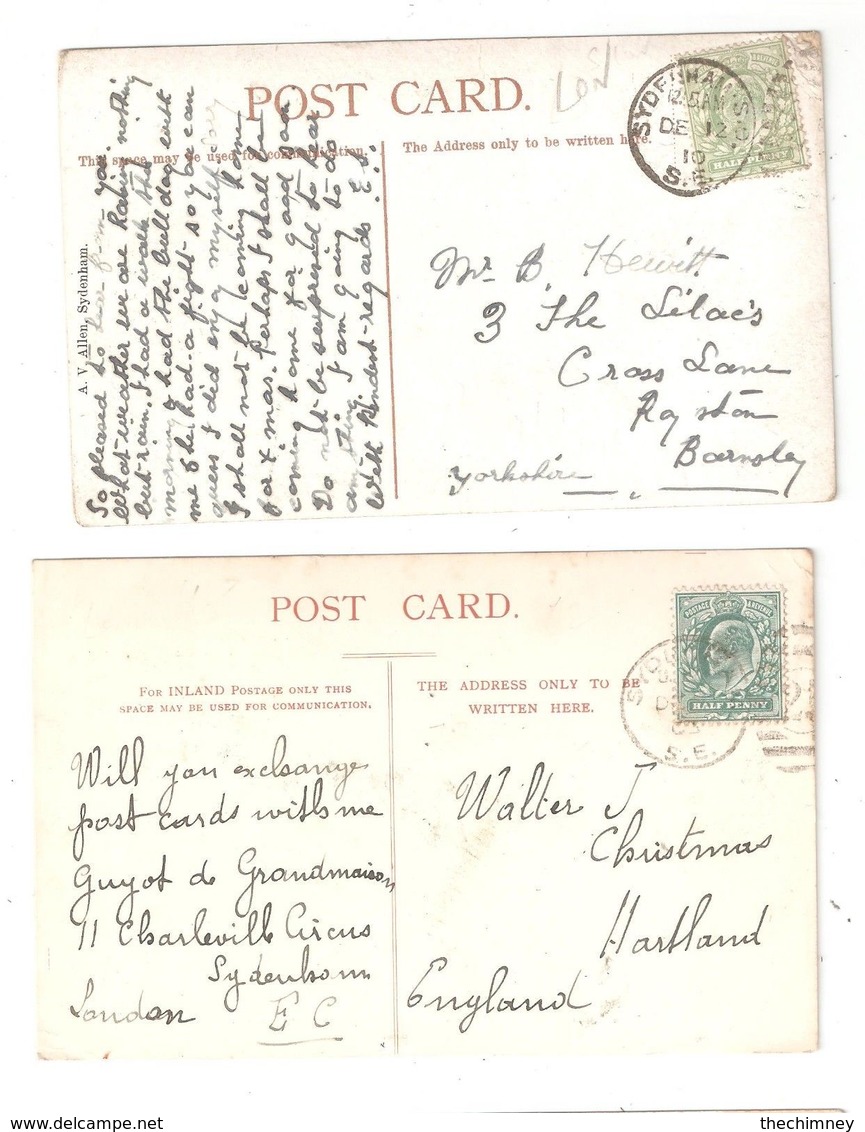 LON
POST CARD.
This space may be used for communication.
The Address only to be written here.
A. V. Allen, Sydenham.
So pleased to hear from you.
What weather we are having nothing
but rain. I had a walk this
morning & had the bulldog with
me & he had a fight so you can
guess I did enjoy myself
I shall not be coming home
for Xmas. Perhaps I shall be
coming home for a good
Do not be surprised to hear
any thing I am going to do
With Kindest regards E.
SYDENHAM S.O.
DE 12
10
S.E.
HALFPENNY
Mr B. Hewitt
3 The Lilac's
Cross Lane
Royston
Barnsley
Yorkshire
POST CARD.
FOR INLAND POSTAGE ONLY THIS
SPACE MAY BE USED FOR COMMUNICATION.
THE ADDRESS ONLY TO BE
WRITTEN HERE.
POSTAGE & REVENUE
HALF PENNY
S.E.
Will you exchange
post cards with me
Guyot de Grandmaison
11 Charleville Circus
Sydenham
London E C
Walter J
Christmas
Hartland
England
thechimney